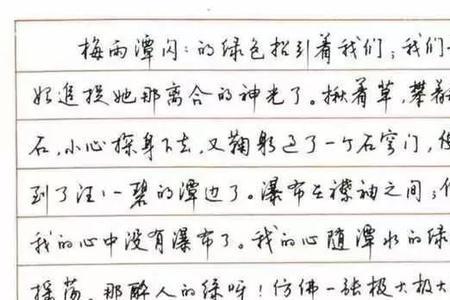 梅雨潭闪闪的绿色招引着我们；我们
始追捉她那离合的神光了。揪着草，攀着
石，小心探身下去，又鞠躬过了一个石穹门，便
到了汪汪一碧的潭边了。瀑布在襟袖之间；但
我的心中没有瀑布了。我的心随潭水的绿
摇荡。那醉人的绿呀！仿佛一张极大极大